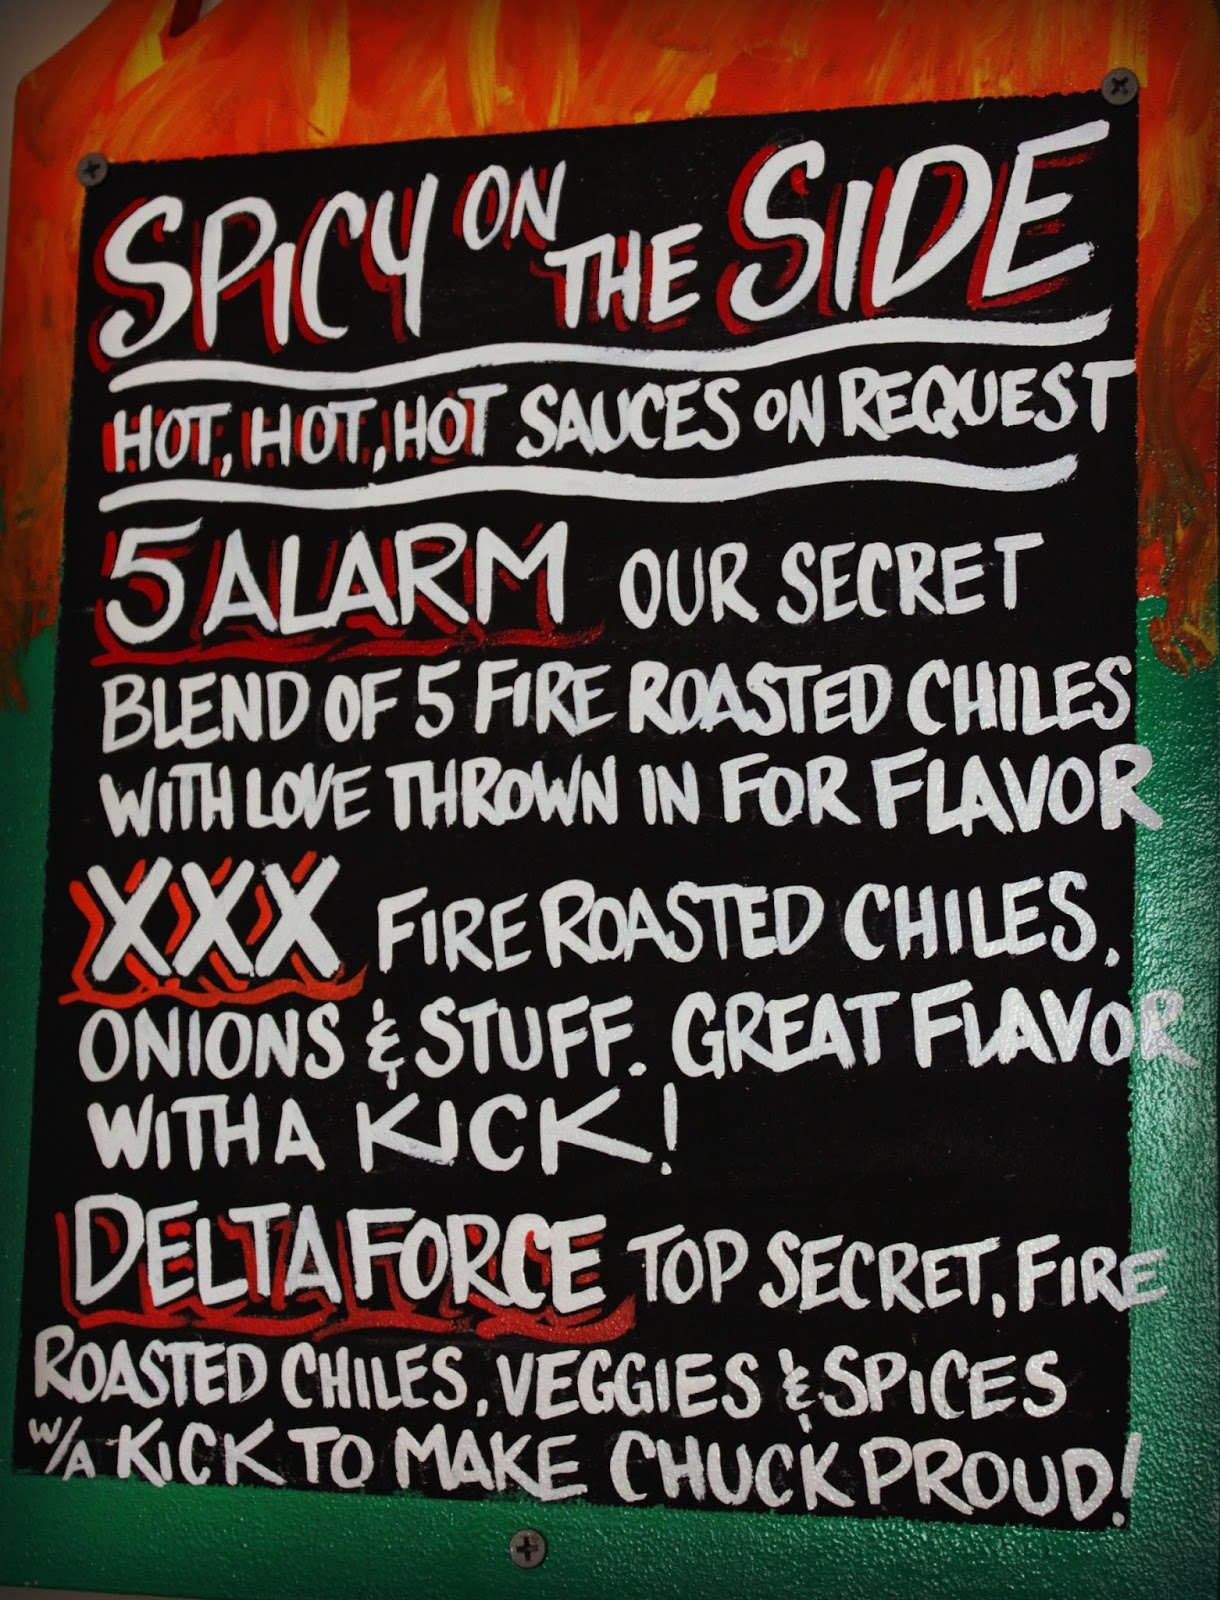 SPICY ON THE SIDE
HOT, HOT, HOT SAUCES ON REQUEST
5 ALARM OUR SECRET
BLEND OF 5 FIRE ROASTED CHILES
WITH LOVE THROWN IN FOR FLAVOR
XXX FIRE ROASTED CHILES,
ONIONS & STUFF. GREAT FLAVOR
WITH A KICK!
DELTA FORCE TOP SECRET, FIRE
ROASTED CHILES, VEGGIES & SPICES
W/A KICK TO MAKE CHUCK PROUD!